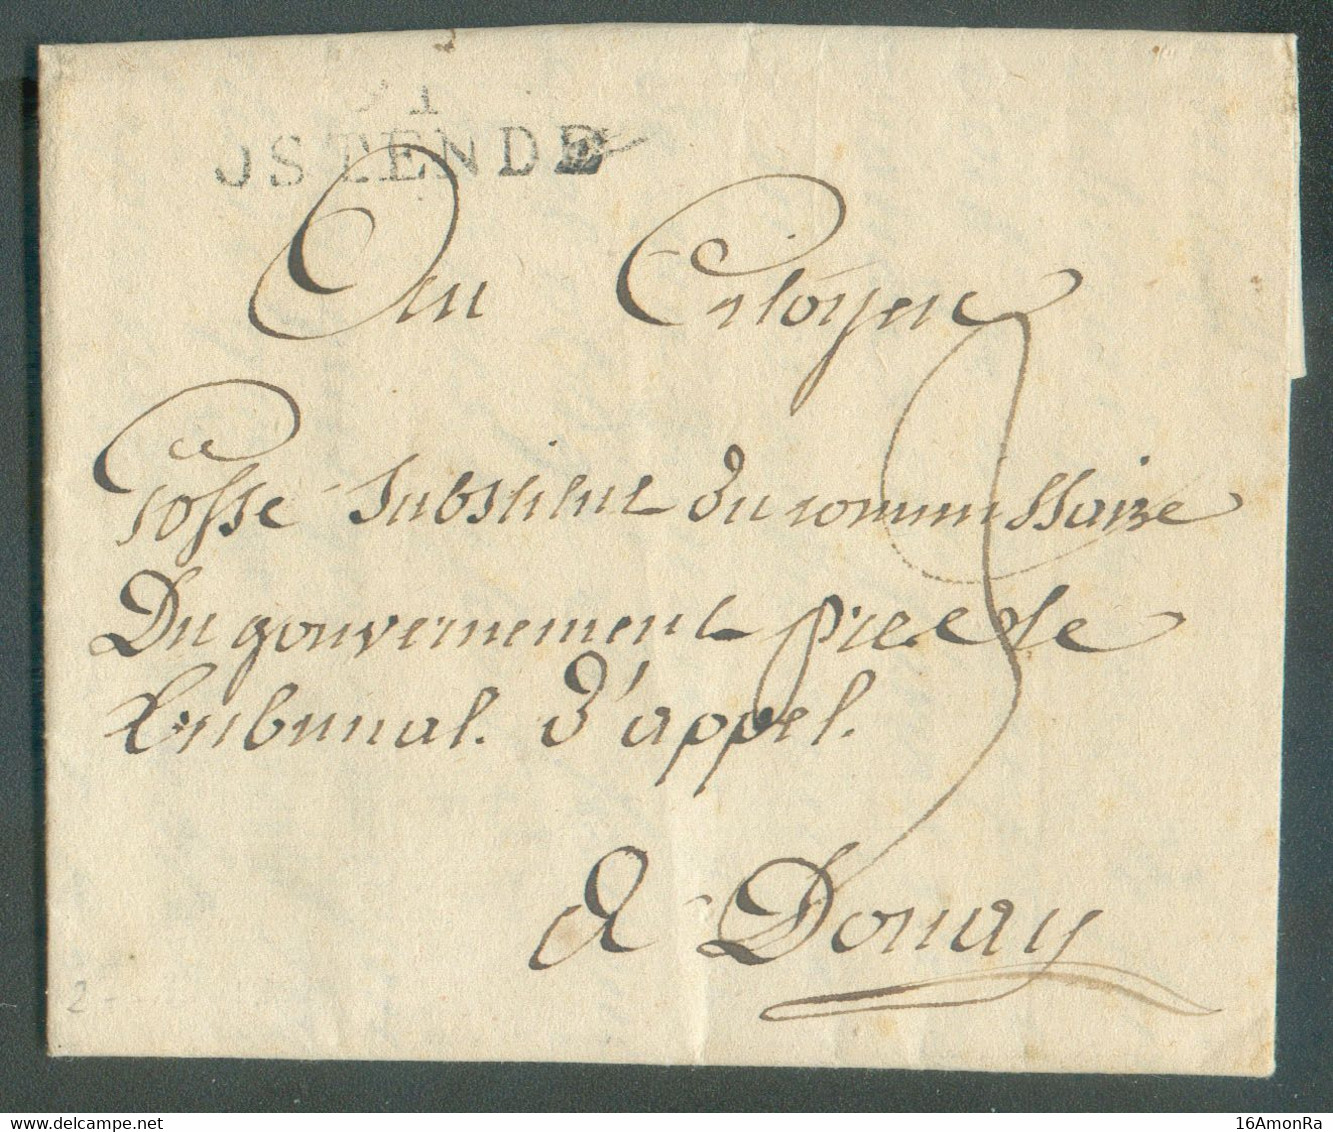 91
OSTENDE
Au Citoyen
Gosse substitut du commissaire
Du gouvernement pres le
Tribunal. d'appel.
a Douay
2
www.delcampe.net
16AmonRa